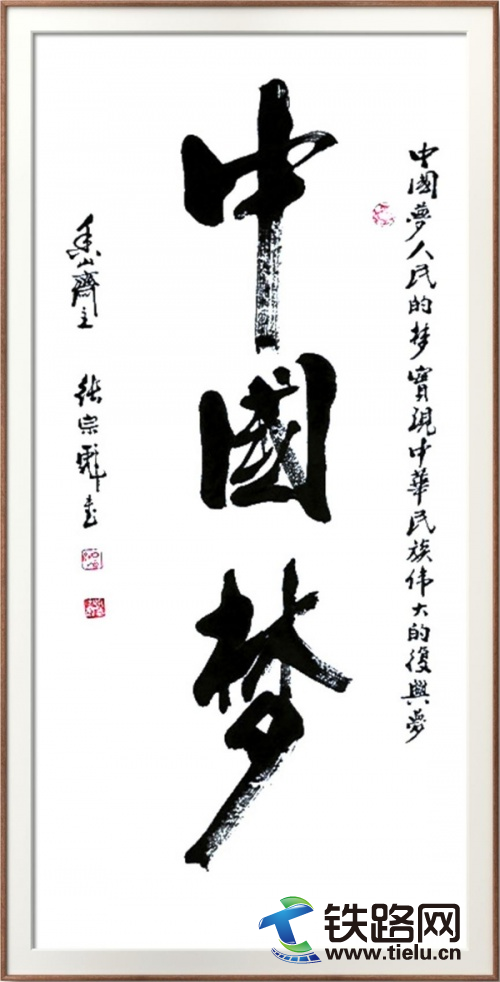 中國夢人民的梦實現中華民族伟大的復興夢
中國梦
香山齋主 张宗彪书
铁路网
www.tielu.cn